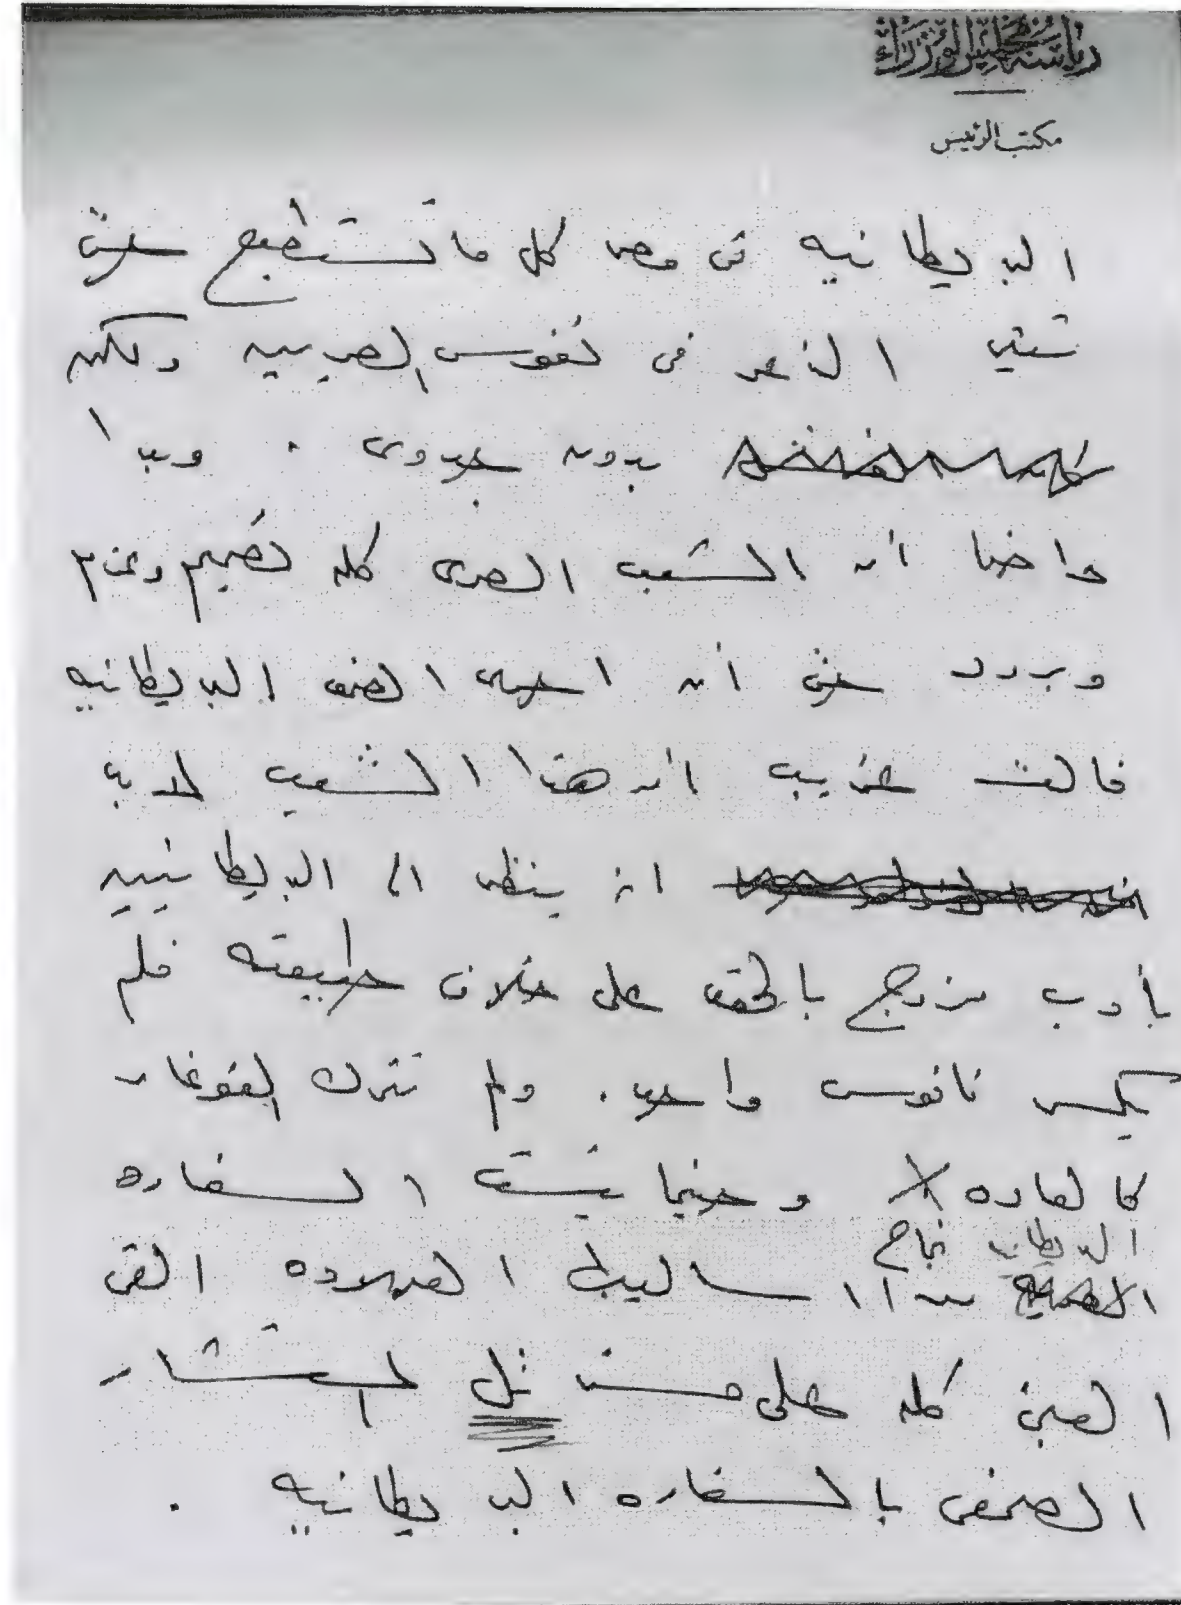 رئاسة مجلس الوزراء
مكتب الرئيس
البريطانيه فى مصر كل ما تستطيع حتى
الذعر فى نفوس المصريين ولكن
بدون جدوى . وبدا
واضحا أن الشعب المصرى كله تصميم وعزم
وبرود حتى أن احدى الصحف البريطانيه
قالت أن هذا الشعب لابد
ان ينظر الى البريطانيين
بأدب مزوج بالحقد على خلاف طبيعته فلم
يكسر فانوس واحد . ولم تترك الغوغاء
كالعاده و حينما يئست السفاره
البريطانيه نجاح
من الاساليب المعهوده القى
العبئ كله على مستر المستشار
الصحفى بالسفاره البريطانيه .